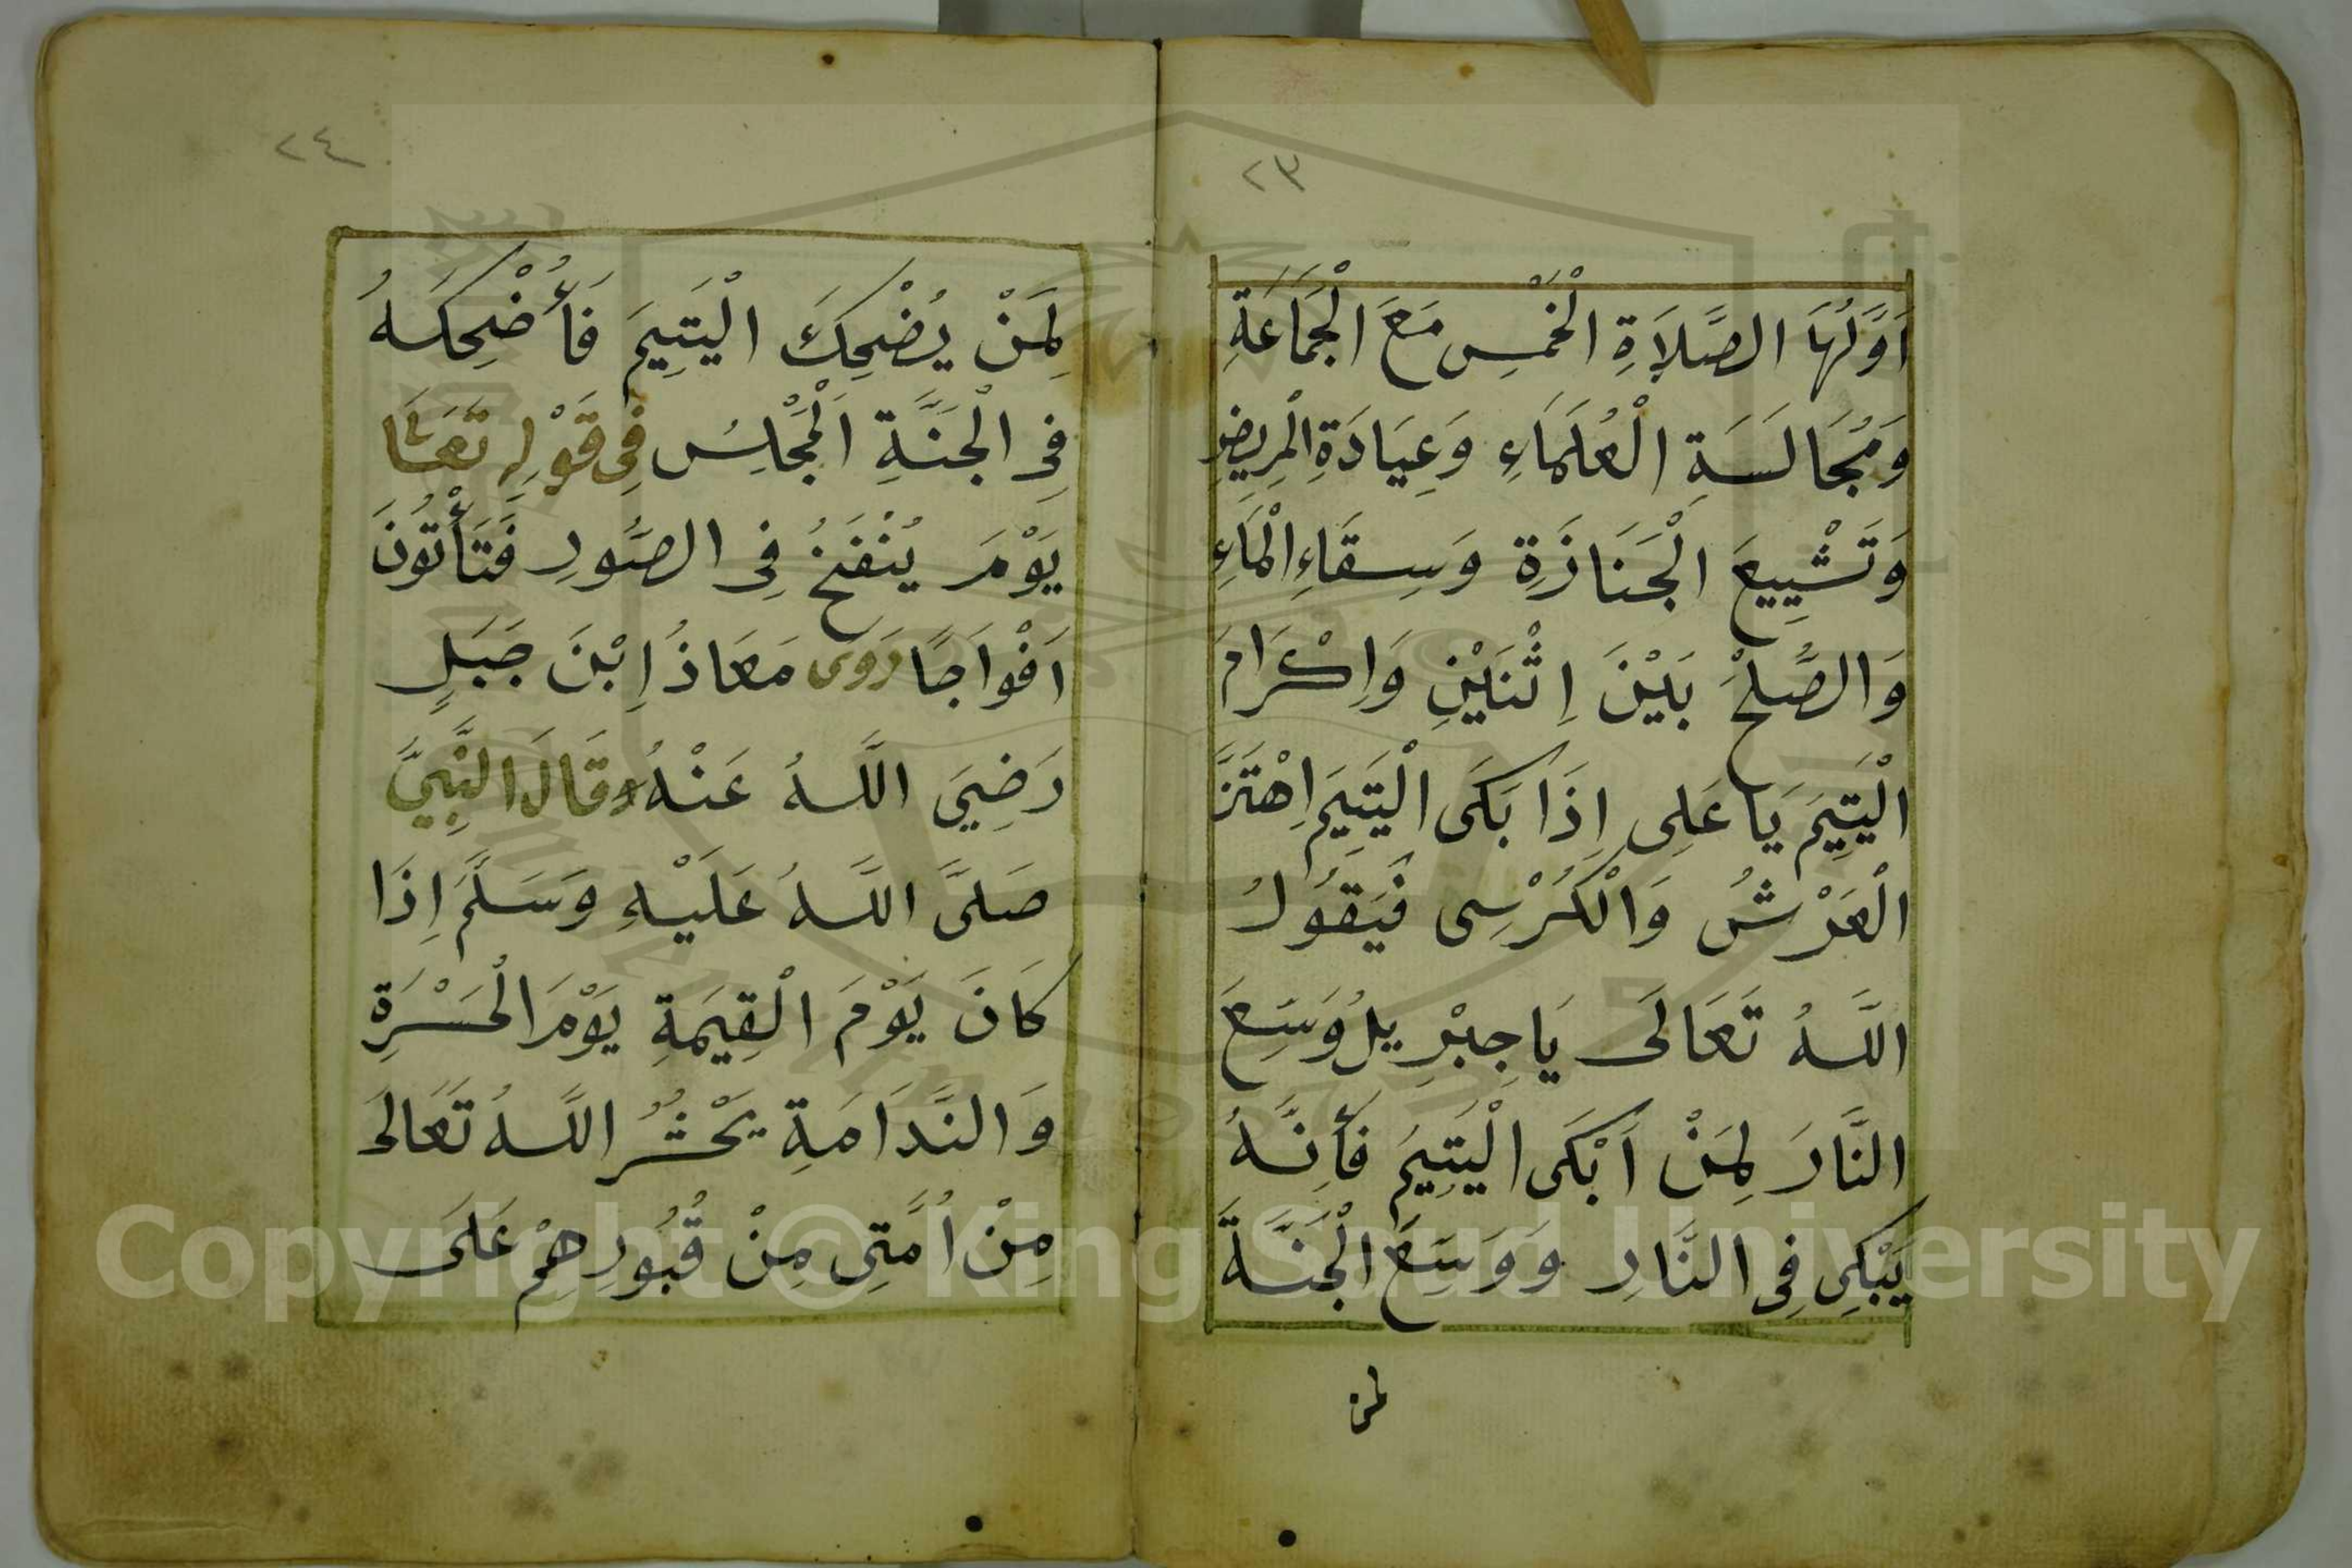 ٢٣
اَوَّلُهَا الصَّلَاةِ الْخَمْسِ مَعَ الْجَمَاعَةِ
وَمُجَالَسَةِ الْعُلَمَاءِ وَعِيَادَةِ الْمَرِيضِ
وَتَشْيِيعَ الْجَنَازَةِ وَسِقَاءِ الْمَاءِ
وَالصُّلْحْ بَيْنَ اِثْنَيْنِ وَاِكْرَامَ
الْيَتِيمَ يَا عَلِى اِذَا بَكَى الْيَتِيمَ اِهْتَزَّ
الْعَرْشُ وَالْكُرْسِى فَيَقُولُ
اللَّهُ تَعَالَى يَا جِبْرِيلُ وَسِعَ
النَّارَ لِمَنْ اَبْكَى الْيَتِيمَ فَأِنَّهُ
يَبْكِى فِى النَّارِ وَوَسِعَ الْجَنَّةَ
لمن
٢٤
لِمَنْ يُضْحِكَ الْيَتِيمَ فَأُضْحِكَهُ
فِى الْجَنَّةِ اَلْمَجْلِسُ فِى قَوْلِهِ تَعَالَى
يَوْمَ يُنْفَخُ فِى الصُّورِ فَتَأْتُونَ
اَفْوَاجًا رَوى مَعَاذُ اِبْنَ جَبَلٍ
رَضِيَ اللَّهُ عَنْهُ قَالَ النَّبِيَّ
صَلَّى اللَّهُ عَلَيْهِ وَسَلَّمَ اِذَا
كَانَ يَوْمَ الْقِيمَةِ يَوْمَ الْحَسْرَةِ
وَالنَّدَامَةِ يَحْشُرُ اللَّهُ تَعَالَى
مِنْ اُمَّتِى مِنْ قُبُورِهِمْ عَلَى
Copyright © King Saud University
1957